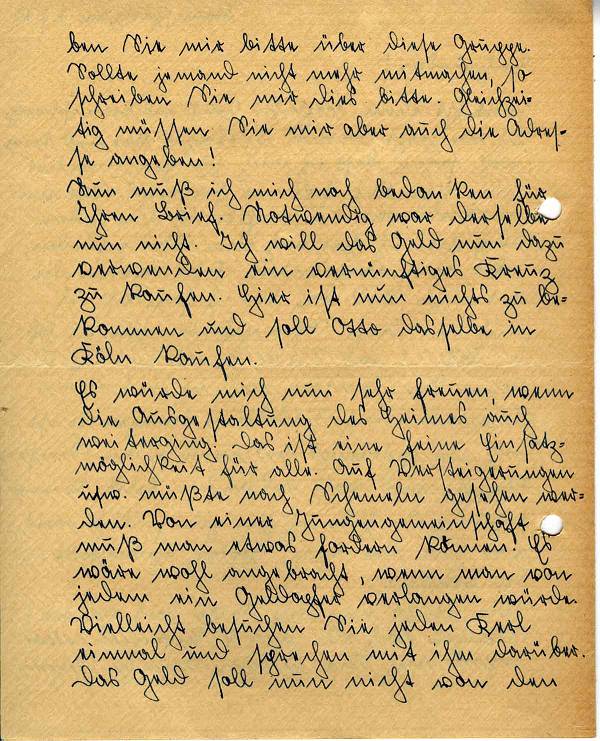 ben Sie mir bitte über diese Gruppe.
Sollte jemand nicht mehr mitmachen, so
schreiben Sie mir dies bitte. Gleichzei-
tig müssen Sie mir aber auch die Adres-
se angeben!
Nun muß ich mich noch bedanken für
Ihren Brief. Notwendig war derselbe
nun nicht. Ich will das Geld nun dazu
verwenden ein vernünftiges Kreuz
zu kaufen. Hier ist nun nichts zu be-
kommen und soll Otto dasselbe in
Köln kaufen.
Es würde mich nun sehr freuen, wenn
die Ausgestaltung des Heimes auch
weiterging. Das ist eine feine Einsatz-
möglichkeit für alle. Auf Versteigerungen
usw. müßte nach Schemeln gesehen wer-
den. Von einer Jungengemeinschaft
muß man etwas fordern können! Es
wäre wohl angebracht, wenn man von
jedem ein Geldopfer verlangen würde.
Vielleicht besuchen Sie jeden Kerl
einmal und sprechen mit ihm darüber.
Das Geld soll nun nicht von den